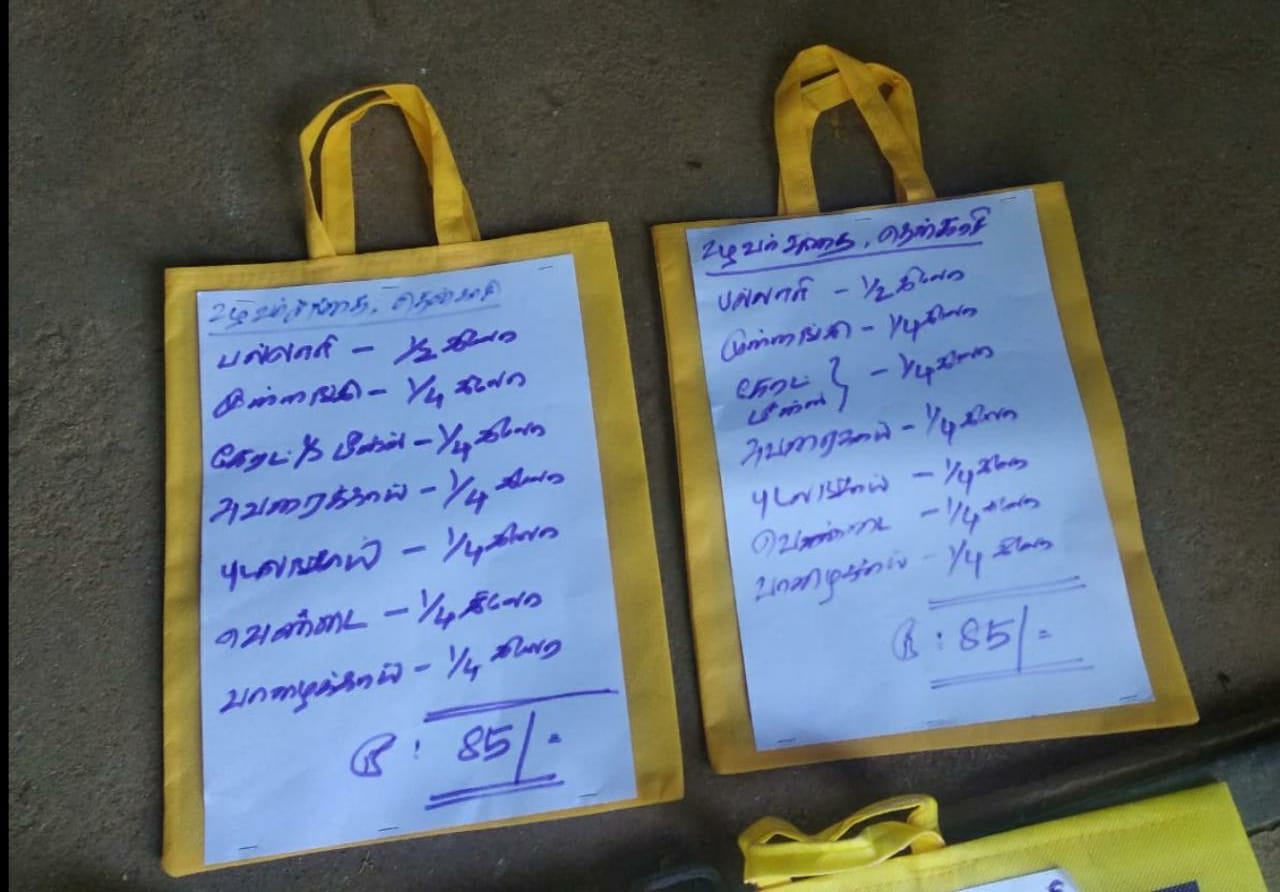 உழவர் சந்தை, தென்காசி
பல்லாரி - 1/2 கிலோ
முள்ளங்கி - 1/4 கிலோ
கேரட் / பீன்ஸ் - 1/4 கிலோ
அவரைக்காய் - 1/4 கிலோ
புடலங்காய் - 1/4 கிலோ
வெண்டை - 1/4 கிலோ
வாழைக்காய் - 1/4 கிலோ
ரூ : 85/=
உழவர் சந்தை, தென்காசி
பல்லாரி - 1/2 கிலோ
முள்ளங்கி - 1/4 கிலோ
கேரட் } - 1/4 கிலோ
பீன்ஸ்
அவரைக்காய் - 1/4 கிலோ
புடலங்காய் - 1/4 கிலோ
வெண்டை - 1/4 கிலோ
வாழைக்காய் - 1/4 கிலோ
ரூ : 85/=